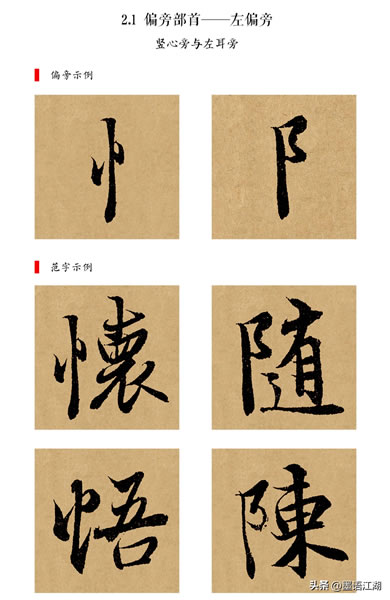 2.1 偏旁部首——左偏旁
竖心旁与左耳旁
偏旁示例
忄 阝
范字示例
懷 随
悟 陳
头条 @墨语江湖